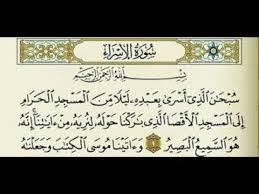 سُورَةُ الْإِسْرَاءِ
بِسْمِ اللَّهِ الرَّحْمَٰنِ الرَّحِيمِ
سُبْحَٰنَ ٱلَّذِىٓ أَسْرَىٰ بِعَبْدِهِۦ لَيْلًا مِّنَ ٱلْمَسْجِدِ ٱلْحَرَامِ
إِلَى ٱلْمَسْجِدِ ٱلْأَقْصَا ٱلَّذِى بَٰرَكْنَا حَوْلَهُۥ لِنُرِيَهُۥ مِنْ ءَايَٰتِنَآ إِنَّهُۥ
هُوَ ٱلسَّمِيعُ ٱلْبَصِيرُ ١ وَءَاتَيْنَا مُوسَى ٱلْكِتَٰبَ وَجَعَلْنَٰهُ